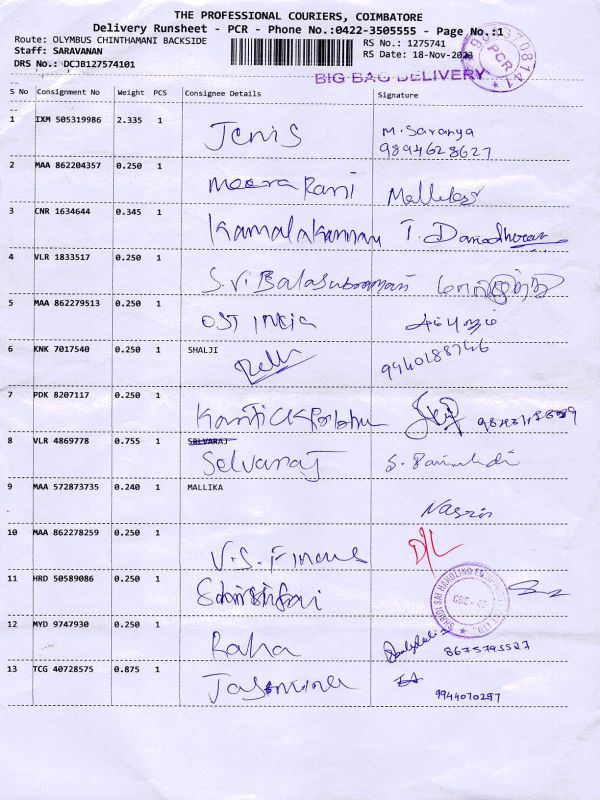 THE PROFESSIONAL COURIERS, COIMBATORE
Delivery Runsheet - PCR - Phone No.:0422-3505555 - Page No.:1
Route: OLYMBUS CHINTHAMANI BACKSIDE
RS No.: 1275741
Staff: SARAVANAN
RS Date: 18-Nov-2023
DRS No.: DCJB127574101
BIG BAG DELIVERY
PCR
S No Consignment No Weight PCS Consignee Details Signature
1 IXM 505319986 2.335 1
Jenis M. Saranya
9894628627
2 MAA 862204357 0.250 1
Meera Rani
3 CNR 1634644 0.345 1
Kamalakannan T. Damodharan
4 VLR 1833517 0.250 1
S.V. Balasubramani
5 MAA 862279513 0.250 1
OST India
6 KNK 7017540 0.250 1 SHALJI
9940188746
7 PDK 8207117 0.250 1
8 VLR 4869778 0.755 1 SELVARAJ
Selvaraj
9 MAA 572873735 0.240 1 MALLIKA
Nasrin
10 MAA 862278259 0.250 1
V.S. Finance D/L
11 HRD 50589086 0.250 1
12 MYD 9747930 0.250 1
Raha 8675795527
13 TCG 40728575 0.875 1
Jasmine
9944070297